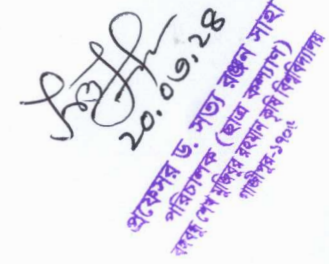 ২০.০৩.২৪
প্রফেসর ড. সত্য রঞ্জন সাহা
পরিচালক (ছাত্র কল্যাণ)
বঙ্গবন্ধু শেখ মুজিবুর রহমান কৃষি বিশ্ববিদ্যালয়
গাজীপুর-১৭০৬